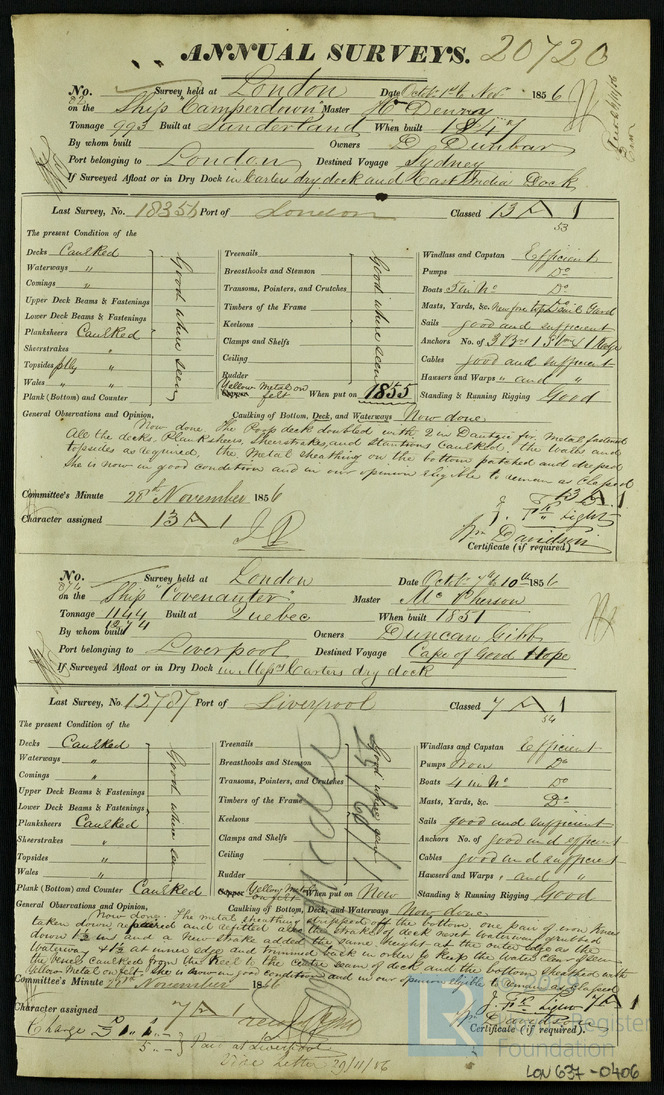 ANNUAL SURVEYS. 20720
No. 82 Survey held at London Date Octobr 1st to Nov 1856
on the Ship "Camperdown" Master Wm Denny
Tonnage 993 Built at Sunderland When built 1847
By whom built Owners D Dunbar
Port belonging to London Destined Voyage Sydney
If Surveyed Afloat or in Dry Dock in Carters dry dock and East India Dock
Last Survey, No. 18356 Port of London Classed 13 A 1
53
The present Condition of the
Decks Caulked
Waterways "
Comings "
Upper Deck Beams & Fastenings
Lower Deck Beams & Fastenings
Planksheers Caulked
Sheerstrakes "
Topsides ptly "
Wales " "
Plank (Bottom) and Counter
Good where seen
Treenails
Breasthooks and Stemson
Transoms, Pointers, and Crutches
Timbers of the Frame
Keelsons
Clamps and Shelfs
Ceiling
Rudder
Copper Yellow Metal on felt When put on 1855
Good where seen
Windlass and Capstan Efficient
Pumps Do
Boats 5 in No Do
Masts, Yards, &c. New fore topsail Yard
Sails good and sufficient
Anchors No. of 3 Brs 1 Stm & 1 Kedge
Cables good and sufficient
Hawsers and Warps " and "
Standing & Running Rigging Good
General Observations and Opinion, Caulking of Bottom, Deck, and Waterways Now done
Now done. The Poop deck doubled with 2 in Dantzic fir, metal fastened
All the decks, Planksheers, Sheerstrakes, and stantions Caulked, the Wales and
topsides as required, the Metal sheathing on the bottom patched and
She is now in good condition and in our opinion eligible to remain as Classed
13 A 1
Committee's Minute 28th November 1856
J. Light
Character assigned 13 A 1
Wm Davidson
Certificate (if required)
No. 874 Survey held at London Date Octobr 7th to 10th 1856
on the Ship "Covenanter" Master McPherson
Tonnage 1144 1274 Built at Quebec When built 1851
By whom built Owners Duncan Gibb
Port belonging to Liverpool Destined Voyage Cape of Good Hope
If Surveyed Afloat or in Dry Dock in Messrs Carters dry dock
Last Survey, No. 12787 Port of Liverpool Classed 7 A 1
54
The present Condition of the
Decks Caulked
Waterways "
Comings "
Upper Deck Beams & Fastenings
Lower Deck Beams & Fastenings
Planksheers Caulked
Sheerstrakes "
Topsides "
Wales "
Plank (Bottom) and Counter Caulked
Good where seen
Treenails
Breasthooks and Stemson
Transoms, Pointers, and Crutches
Timbers of the Frame
Keelsons
Clamps and Shelfs
Ceiling
Rudder
Copper Yellow Metal on felt When put on Now
Good where seen
Windlass and Capstan Efficient
Pumps Iron Do
Boats 4 in No Do
Masts, Yards, &c. Do
Sails good and sufficient
Anchors No. of good and efficient
Cables good and sufficient
Hawsers and Warps " and "
Standing & Running Rigging Good
General Observations and Opinion, Caulking of Bottom, Deck, and Waterways Now done
Now done. The metal sheathing stripped off the bottom, one pair of iron knees
taken down repaired and refitted also the strakes of deck next waterway grubbed
down 1½ in and a new strake added the same height at the outer edge as the
Waterway, 4½ at inner edge and trimmed back in order to keep the water clear of seam
the Vessel caulked from the Keel to the centre seam of deck and the bottom sheathed with
Yellow Metal on felt - she is now in good condition and in our opinion eligible to remain as Classed
7 A 1
Committee's Minute November 1856
Character assigned 7 A 1
Certificate (if required)
Charge
5 .. - } Paid at Liverpool
Vide Letter 29/11/56
Lloyd's Register
Foundation
LON 637-0406